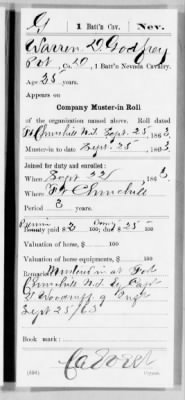 G 1 Batt'n Cav. Nev.
Warren D. Godfrey
Pvt, Co. D, 1 Batt'n Nevada Cavalry.
Age 25 years.
Appears on
Company Muster-in Roll
of the organization named above. Roll dated
Ft Churchill N.T. Sept. 25, 1863.
Muster-in to date Sept. 25, 1863.
Joined for duty and enrolled:
When Sept 22, 1863.
Where Ft Churchill
Period 3 years.
Bounty paid $2 100; due $25 100
Valuation of horse, $ 100
Valuation of horse equipments, $ 100
Remarks: Mustered in at Fort
Churchill N.T. by Capt
Sept 25/63
Book mark:
(334) Copyist.